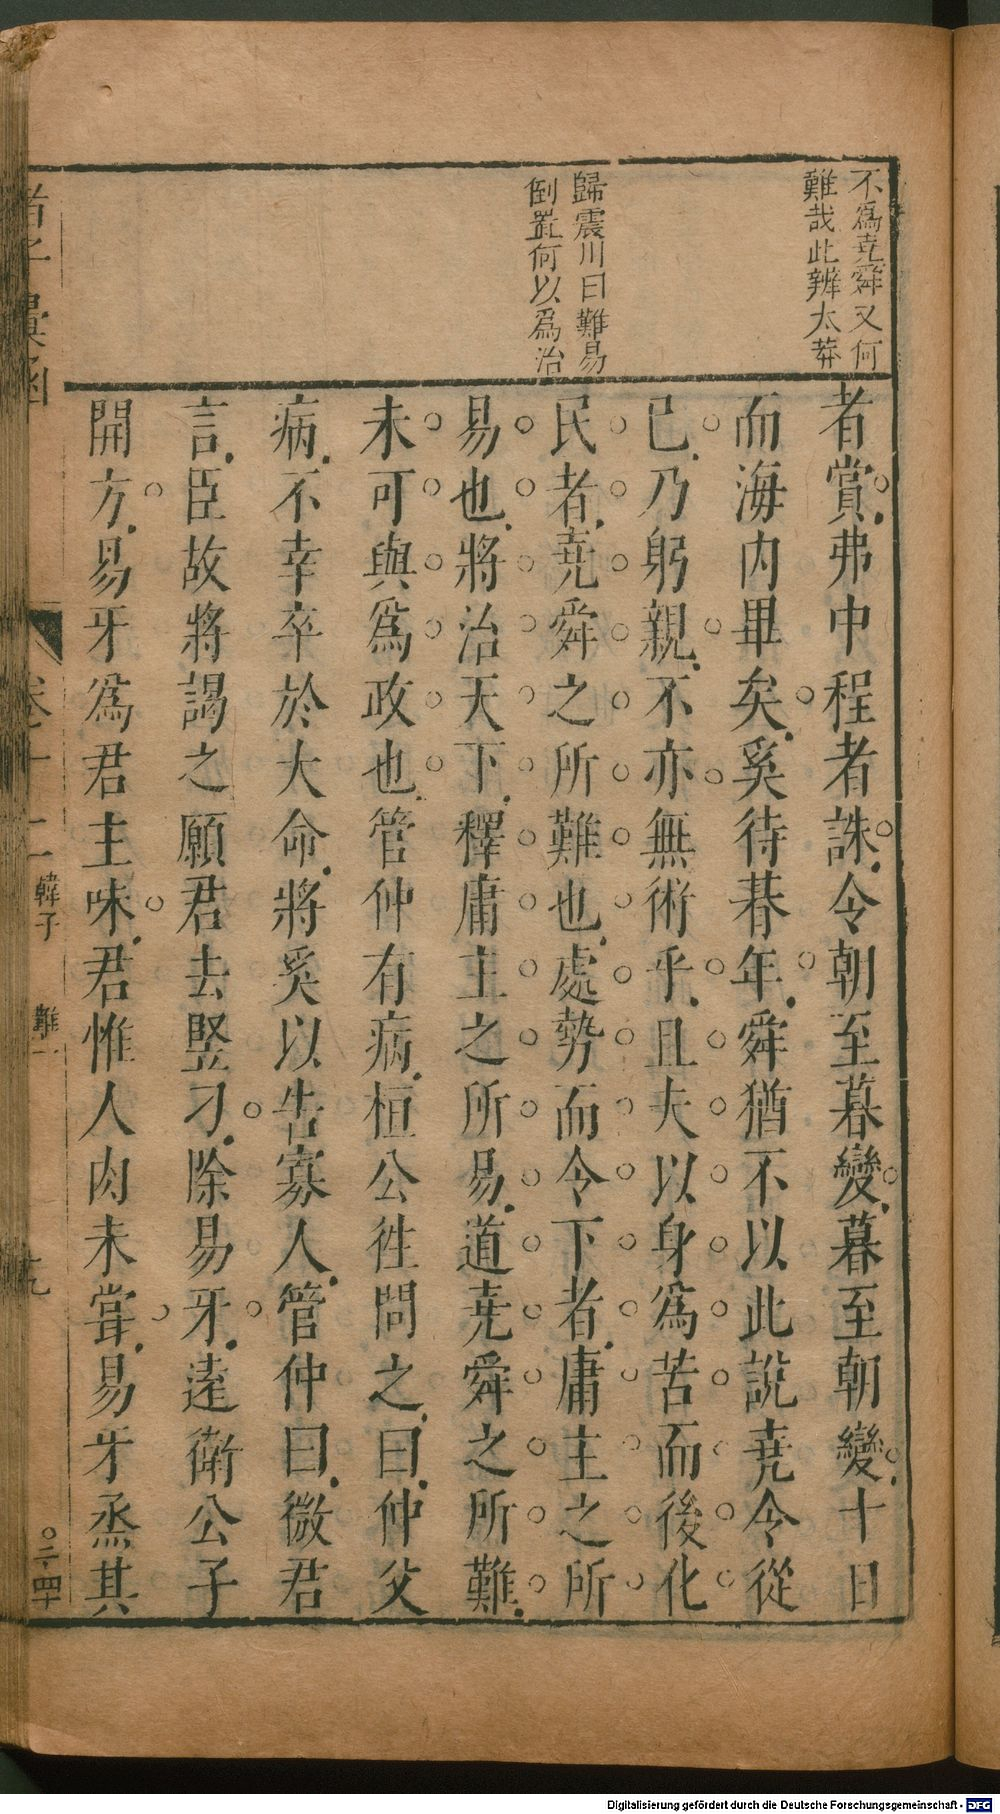 不為堯舜又何
難哉此辨太莽
歸震川曰難易
倒置何以為治
者賞弗中程者誅令朝至暮變暮至朝變十日
而海内畢矣奚待朞年舜猶不以此說堯令從
已乃躬親不亦無術乎且夫以身為苦而後化
民者堯舜之所難也處勢而令下者庸主之所
易也將治天下釋庸主之所易道堯舜之所難
未可與為政也管仲有病桓公徃問之曰仲父
病不幸卒於大命將奚以告寡人管仲曰微君
言臣故將謁之願君去竪刁除易牙逺衛公子
開方易牙為君主味君惟人肉未甞易牙烝其
諸子彚函
卷十二
韓子
難一
十九
○二四
Digitalisierung gefördert durch die Deutsche Forschungsgemeinschaft - DFG